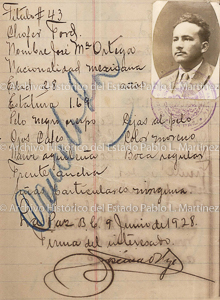 Título # 43
Chofer Ford.
Nombre José Mª Ortega
Nacionalidad mexicana
Edad 28 años
Estatura 1.6
Pelo negro crespo Cejas al pelo
Ojos Cafés Color moreno
Nariz aguileña Boca regular
Frente ancha
Particulares ninguna
La Paz B.C. 9 Junio de 1928.
Firma del interesado.
Archivo Histórico del Estado Pablo L. Martínez